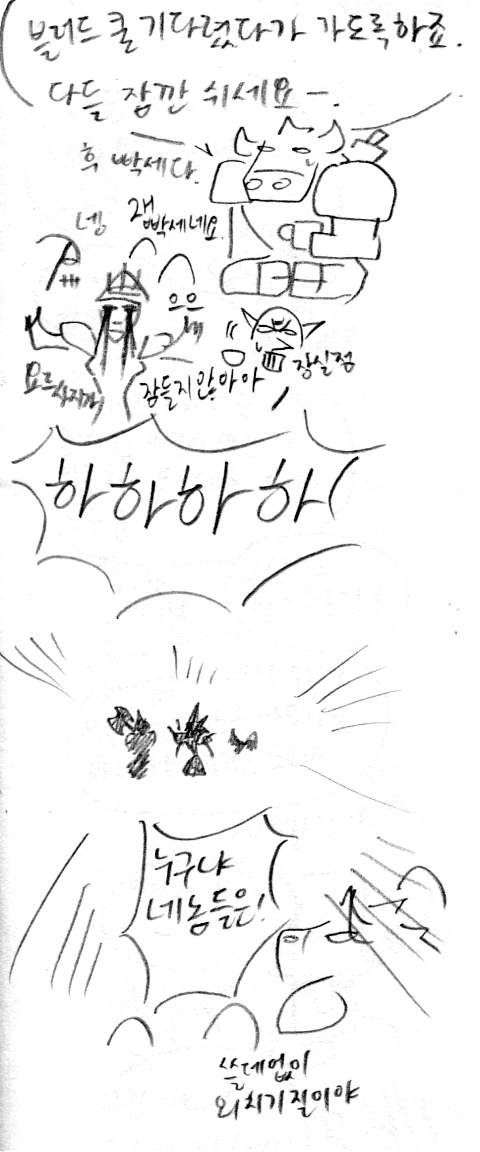 블러드 쿨 기다렸다가 가도록하죠.
다들 잠깐 쉬세요ㅡ.
후 빡세다.
넹
걘
빡세네요
으으
잠들지 않아아
장실점
하하하하
누구냐
네놈들은!
쓸데없이
외치기질이야